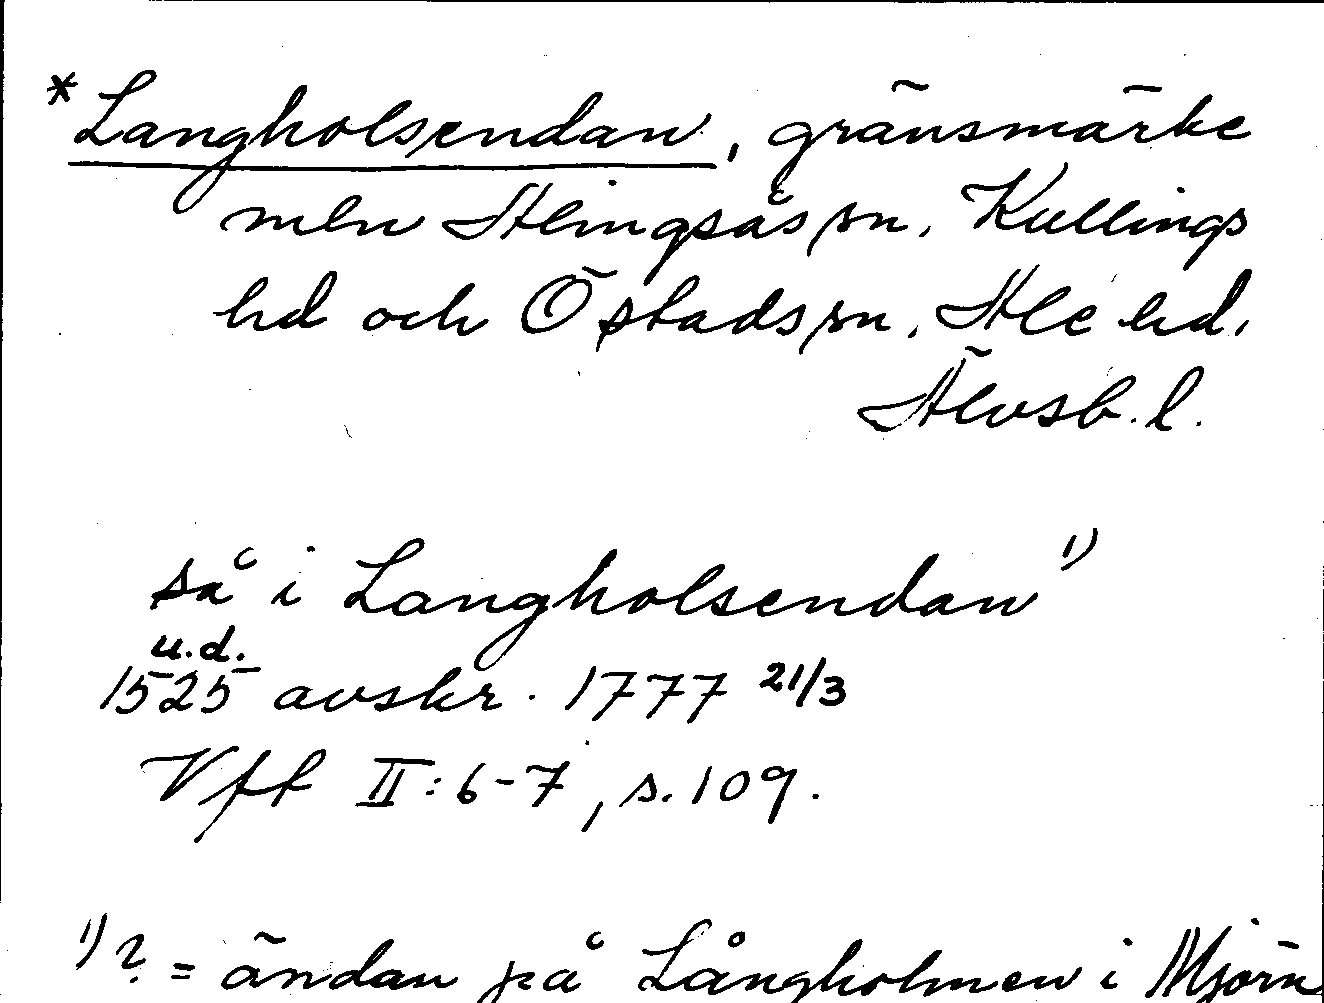 *Langholsendan, gränsmärke
mln Alingsås sn, Kullings
hd och Östads sn, Ale hd,
Älvsb. l.
så i Langholsendan 1)
u.d.
1525 avskr. 1777 21/3
Vff II:6-7, s. 109.
1) ? = ändan på Långholmen i Mjörn